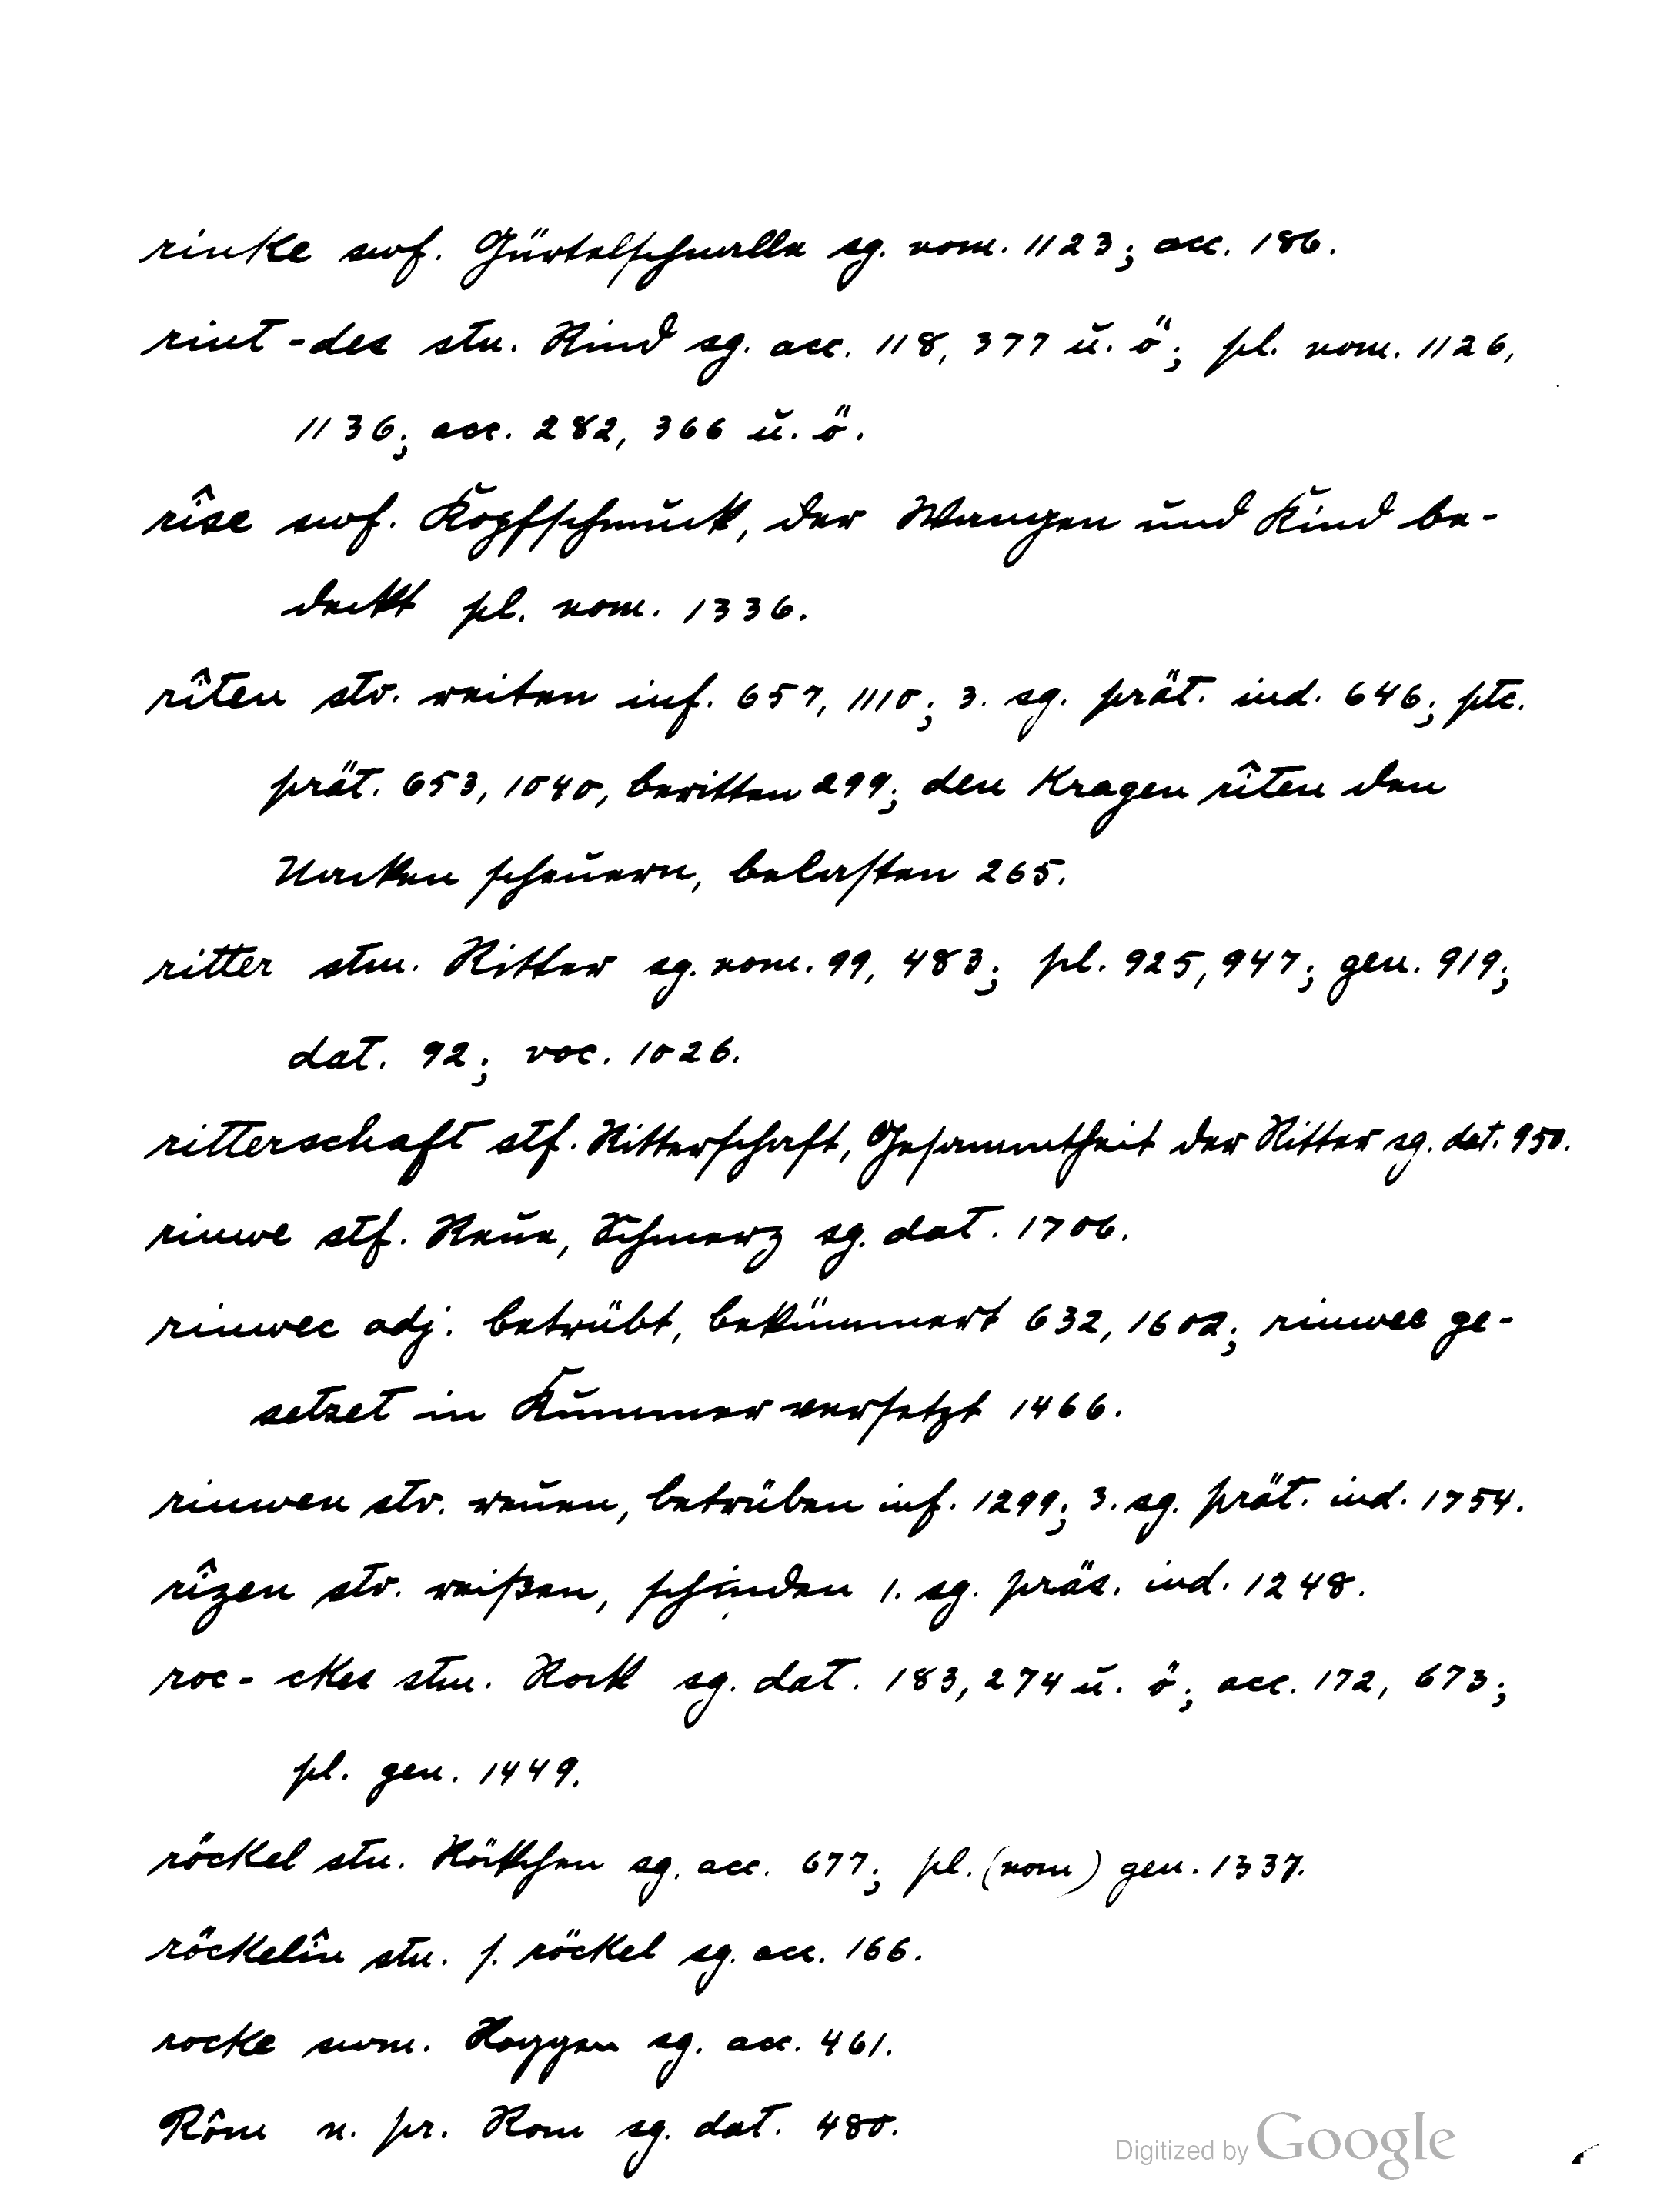 rinke swf. Gürtelschnalle sg. nom. 1123; acc. 186.
rint -des stn. Rind sg. acc. 118, 377 u. ö; pl. nom. 1126,
1136; acc. 282, 366 u. ö.
rîse swf. Kopfschmuck, der Wangen und Kind be-
deckt pl. nom. 1336.
rîten stv. reiten inf. 657, 1110; 3. sg. prät. ind. 646; ptc.
prät. 653, 1040, beritten 299; den Kragen rîten den
Nacken scheuern, belasten 265.
ritter stm. Ritter sg. nom. 99, 483; pl. 925, 947; gen. 919;
dat. 92; voc. 1026.
ritterschaft stf. Ritterschaft, Gesammtheit der Ritter sg. dat. 950.
riuwe stf. Reue, Schmerz sg. dat. 1706.
riuwec adj. betrübt, bekümmert 632, 1602; riuwec ge-
setzet in Kummer versetzt 1466.
riuwen stv. reuen, betrüben inf. 1299; 3. sg. prät. ind. 1754.
rîzen stv. reißen, schinden 1. sg. präs. ind. 1248.
roc- ckes stm. Rock sg. dat. 183, 274 u. ö; acc. 172, 673;
pl. gen. 1449.
röckel stn. Röckchen sg. acc. 677; pl. (nom) gen. 1337.
röckelîn stn. s. röckel sg. acc. 166.
rocke swm. Roggen sg. acc. 461.
Rôm n. pr. Rom sg. dat. 480.
Digitized by Google